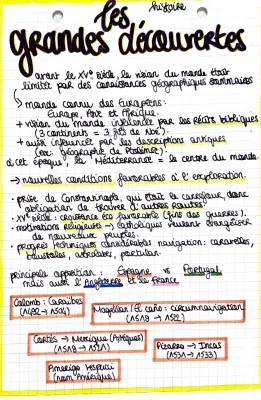 histoire
les
grandes découvertes
avant le XVe siècle, la vision du monde était
limitée par des connaissances géographiques sommaires
↳ monde connu des Européens :
Europe, Art et Afrique.
+ vision du monde influencée par les récits bibliques
(3 continents = 3 fils de Noé).
+ aussi influencée par les descriptions antiques
(ex: géographie de Ptolémée).
à cet époque, la Méditerranée = le centre du monde.
→ nouvelles conditions favorables à l'exploration.
• prise de Constantinople, qui était le carrefour, donc
obligation de trouver d'autres routes.
• XVe siècle : croissance éco favorable (fins des guerres).
• motivations religieuses → Catholiques veulent évangéliser
de nouveaux peuples.
• progrès techniques considérables navigation : caravelles,
boussoles, astrolabes, portulan.
principale opposition : Espagne vs Portugal
mais aussi l'Angleterre et la France
Colomb : Caraïbes
(1492 → 1504)
Magellan / El caño : circumnavigation
(1519 → 1522)
Cortès → Mexique (Aztèques)
(1519 → 1521)
Pizarro → Incas
(1531 → 1533)
Amerigo Vespucci
(nom Amérique)